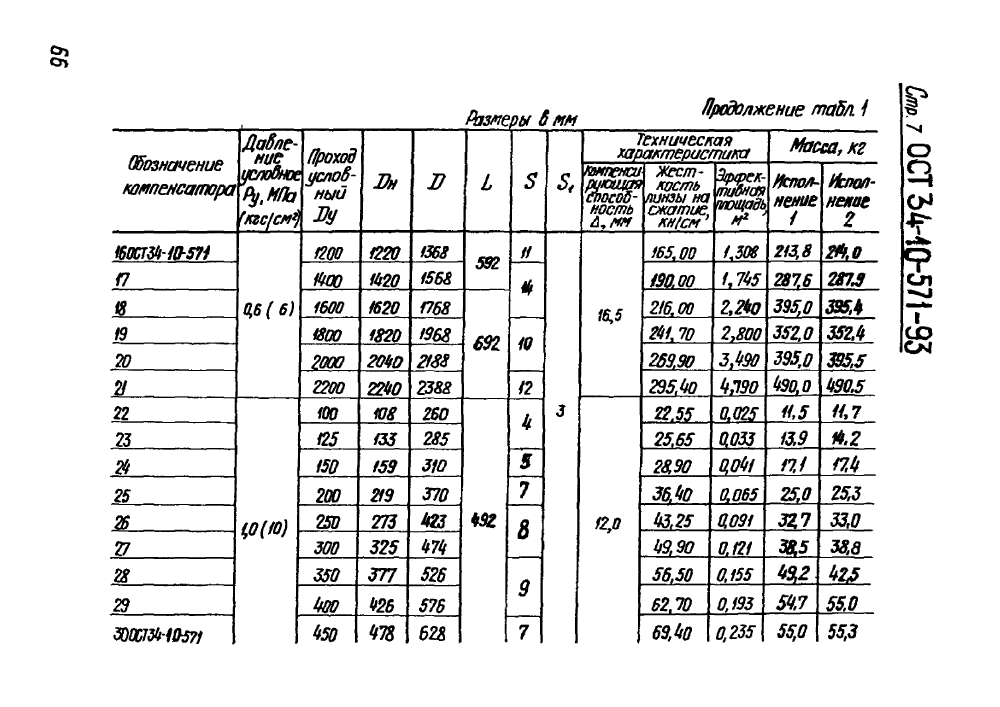 66
Стр. 7 ОСТ 34-10-571-93
Продолжение табл. 1
Размеры в мм
Обозначение компенсатора | Давление условное Ру, МПа (кгс/см²) | Проход условный Ду | Дн | D | L | S | S₁ | Техническая характеристика | Масса, кг
Компенсирующая способность Δ, мм | Жесткость линзы на сжатие, кн/см | Эффективная площадь, м² | Исполнение 1 | Исполнение 2
16 ОСТ34-10-571 | 0,6 (6) | 1200 | 1220 | 1368 | 592 | 11 | 3 | 16,5 | 165,00 | 1,308 | 213,8 | 214,0
17 | 1400 | 1420 | 1568 | 14 | 190,00 | 1,745 | 287,6 | 287.9
18 | 1600 | 1620 | 1768 | 692 | 216,00 | 2,240 | 395,0 | 395,4
19 | 1800 | 1820 | 1968 | 10 | 241,70 | 2,800 | 352,0 | 352,4
20 | 2000 | 2040 | 2188 | 269,90 | 3,490 | 395,0 | 395,5
21 | 2200 | 2240 | 2388 | 12 | 295,40 | 4,790 | 490,0 | 490.5
22 | 1,0 (10) | 100 | 108 | 260 | 492 | 4 | 12,0 | 22,55 | 0,025 | 11,5 | 11,7
23 | 125 | 133 | 285 | 25,65 | 0,033 | 13,9 | 14.2
24 | 150 | 159 | 310 | 5 | 28,90 | 0,041 | 17,1 | 17,4
25 | 200 | 219 | 370 | 7 | 36,40 | 0,065 | 25,0 | 25,3
26 | 250 | 273 | 423 | 8 | 43,25 | 0,091 | 32,7 | 33,0
27 | 300 | 325 | 474 | 49,90 | 0,121 | 38,5 | 38,8
28 | 350 | 377 | 526 | 9 | 56,50 | 0,155 | 49,2 | 42,5
29 | 400 | 426 | 576 | 62,70 | 0,193 | 54,7 | 55,0
30 ОСТ34-10-571 | 450 | 478 | 628 | 7 | 69,40 | 0,235 | 55,0 | 55,3